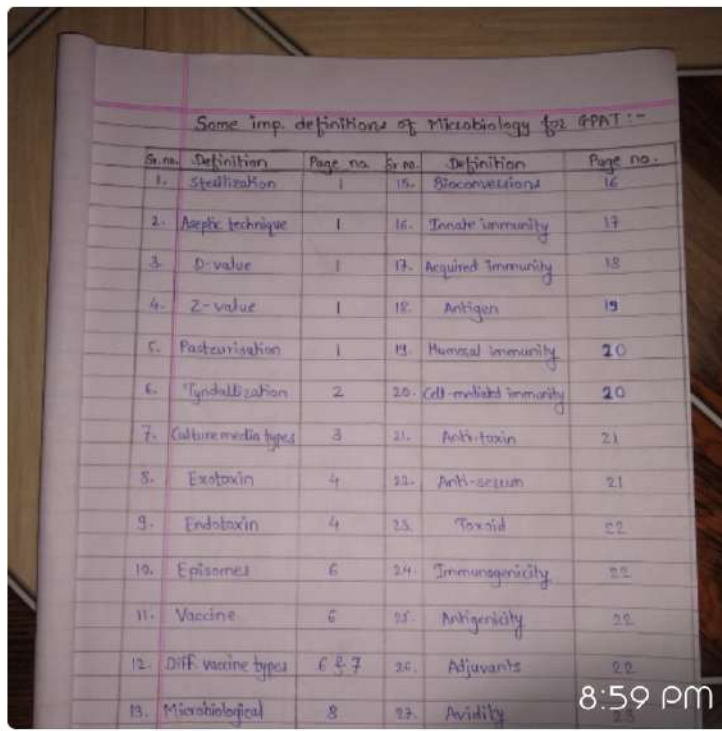 Some imp. definitions of Microbiology for GPAT :-
Sr. no. Definition Page no. Sr. no. Definition Page no.
1. Sterilization 1 15. Bioconversions 16
2. Aseptic technique 1 16. Innate immunity 17
3. D-value 1 17. Acquired immunity 18
4. Z-value 1 18. Antigen 19
5. Pasteurisation 1 19. Humoral immunity 20
6. Tyndallization 2 20. Cell-mediated immunity 20
7. Culture media types 3 21. Anti-toxin 21
8. Exotoxin 4 22. Anti-serum 21
9. Endotoxin 4 23. Toxoid 22
10. Episomes 6 24. Immunogenicity 22
11. Vaccine 6 25. Antigenicity 22
12. Diff. vaccine types 6 & 7 26. Adjuvants 22
13. Microbiological 8 27. Avidity 23
8:59 PM